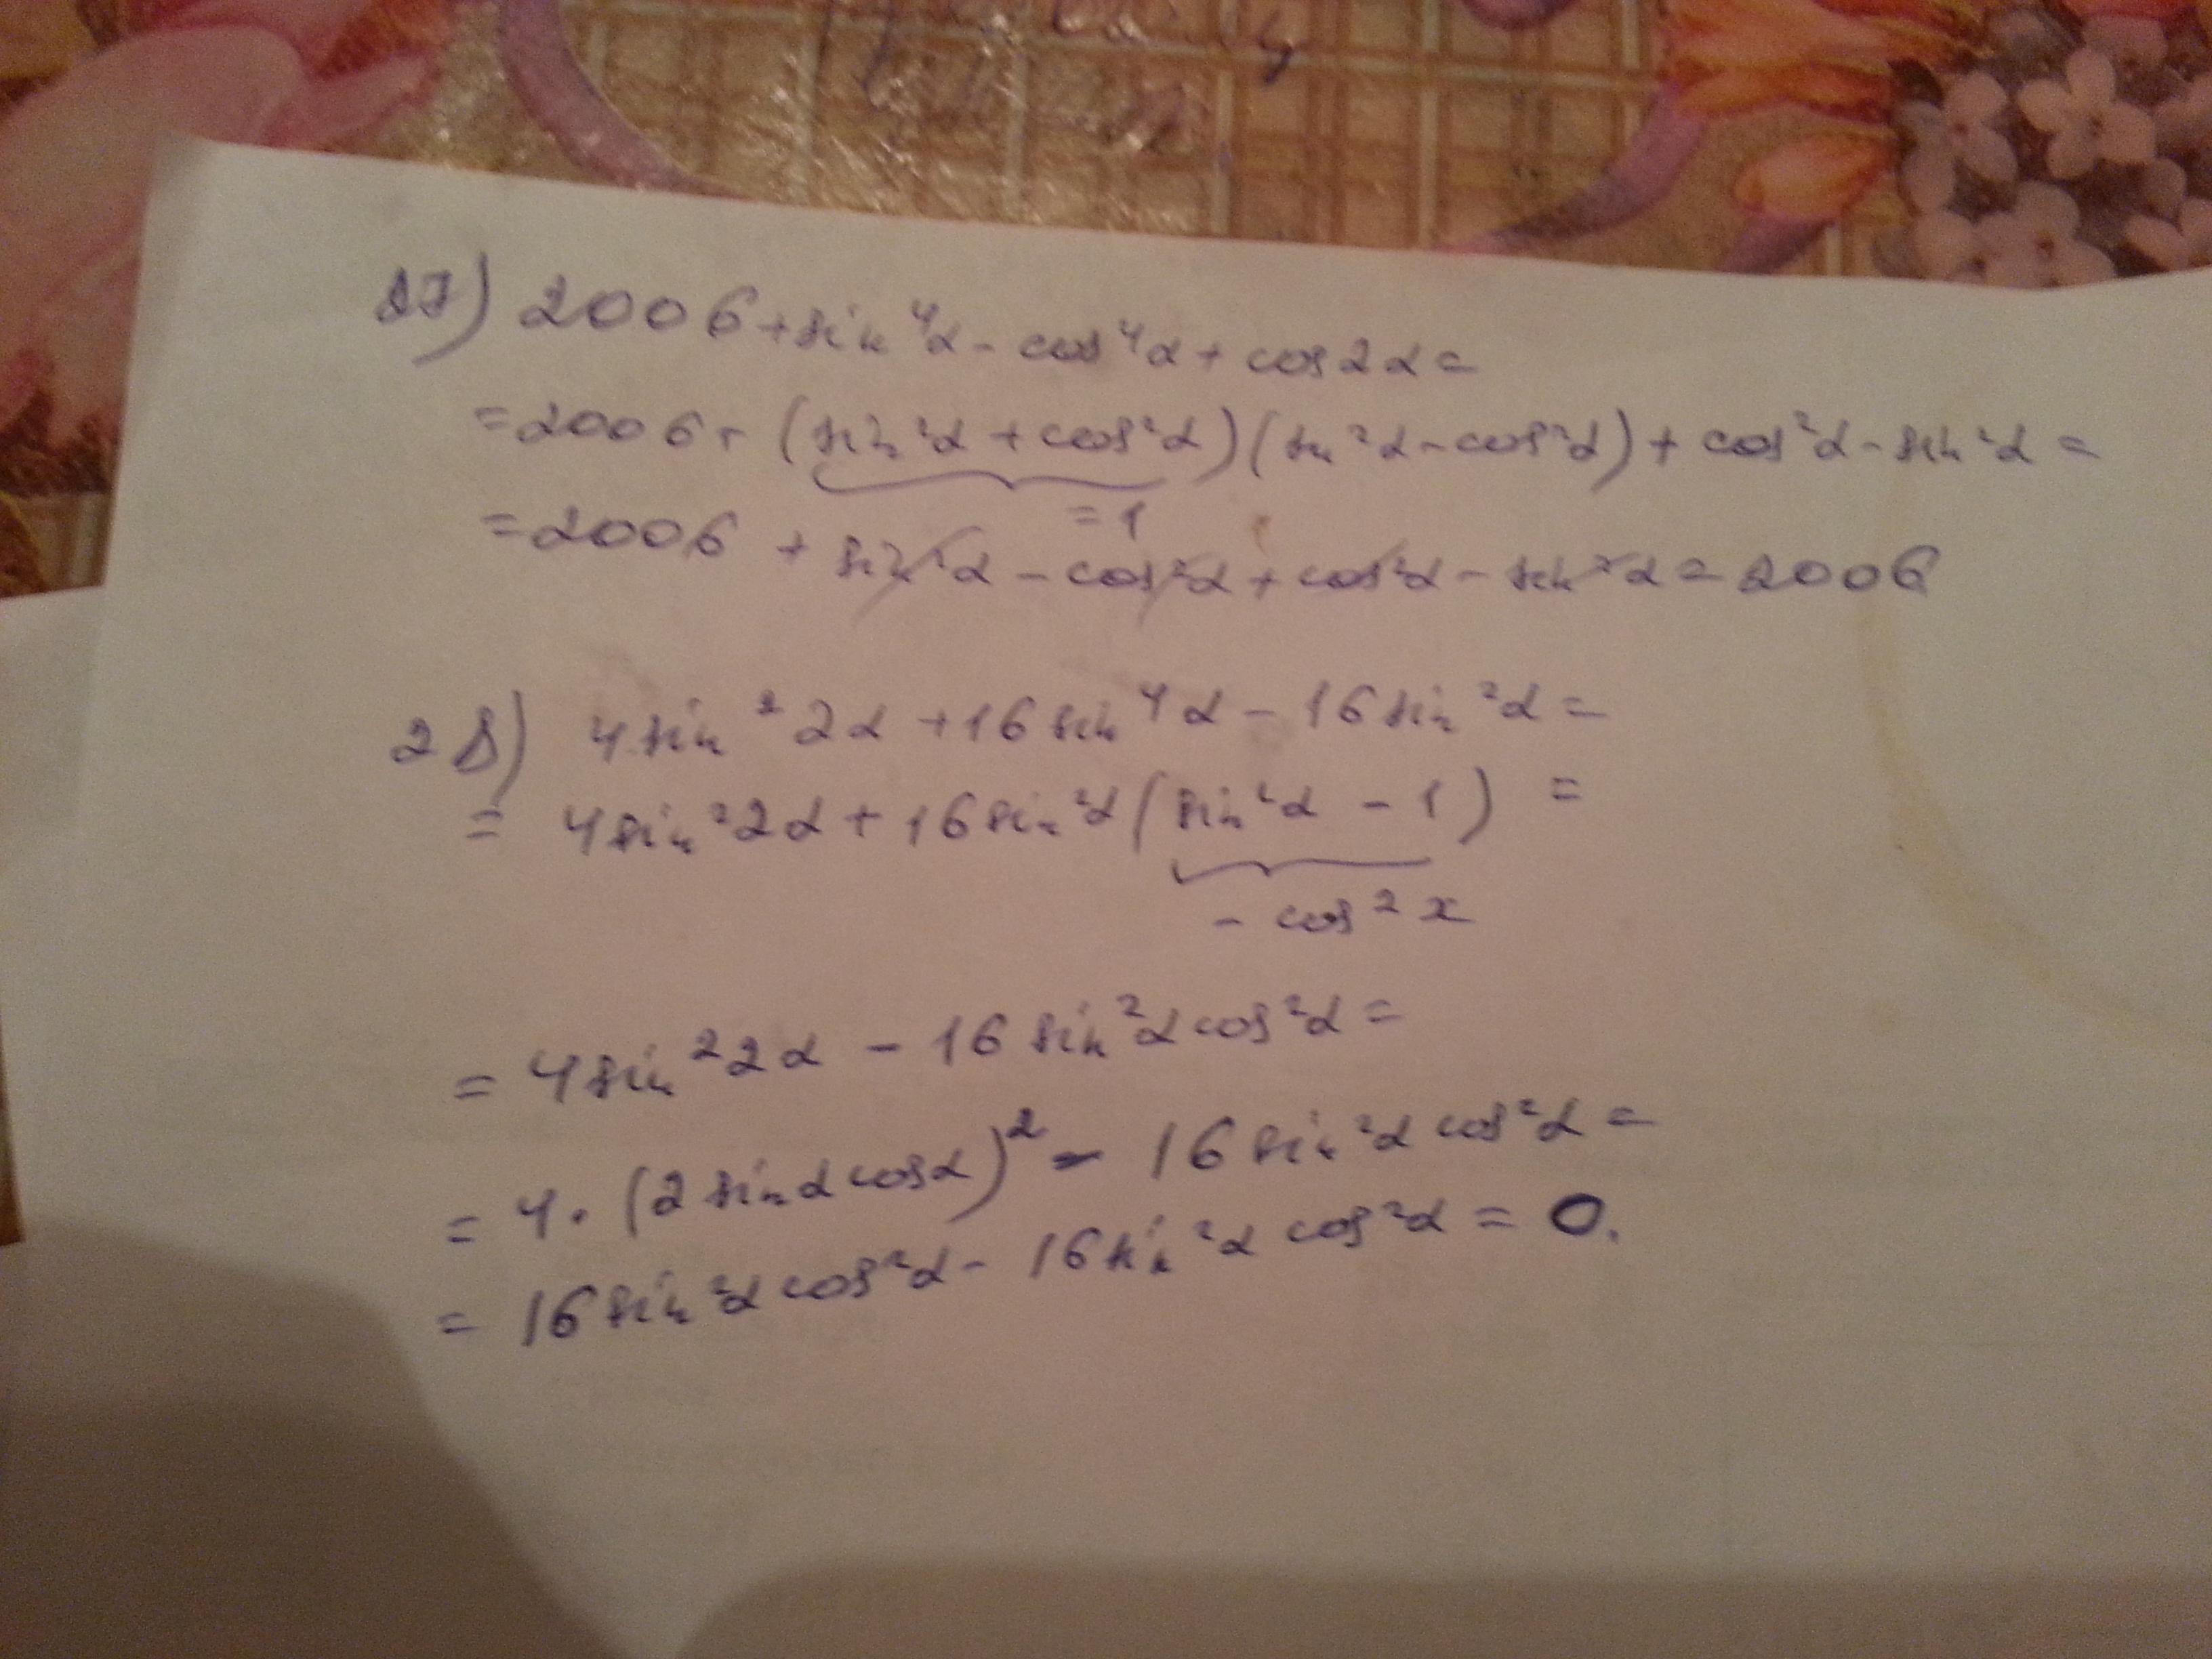 27) 2006 + sin⁴α - cos⁴α + cos2α =
= 2006 + (sin²α + cos²α)(sin²α - cos²α) + cos²α - sin²α =
= 1
= 2006 + sin²α - cos²α + cos²α - sin²α = 2006
28) 4sin²2α + 16sin⁴α - 16sin²α =
= 4sin²2α + 16sin²α(sin²α - 1) =
- cos²x
= 4sin²2α - 16sin²α cos²α =
= 4·(2sinα cosα)² - 16sin²α cos²α =
= 16sin²α cos²α - 16sin²α cos²α = 0.